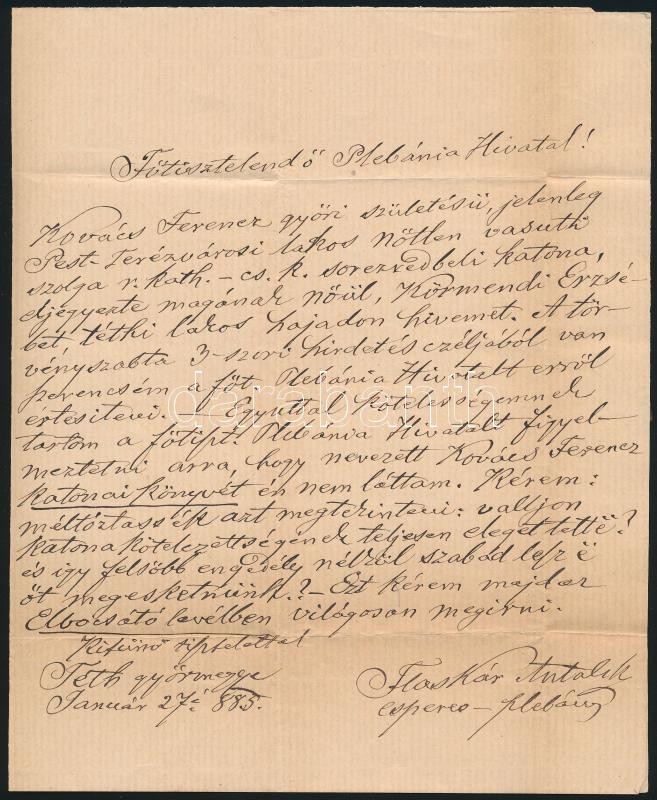 Főtisztelendő Plebánia Hivatal!
Kovács Ferencz győri születésü, jelenleg
Pest-Terézvárosi lakos nőtlen vasuti
szolga r. kath. - cs. k. sorezredbeli katona,
eljegyezte magának nőül, Körmendi Erzsé-
bet téthi lakos hajadon hivemet. A tör-
vényszabta 3-szori hirdetés czéljából van
szerencsém a főt. Plebánia Hivatalt erről
értesiteni. - Egyuttal kötelességemnek
tartom a főtiszt. Plebánia Hivatalt figyel-
meztetni arra, hogy nevezett Kovács Ferencz
katonai könyvét én nem láttam. Kérem:
méltóztassék azt megtekinteni: valljon
katonakötelezettségének teljesen eleget tett é?
és igy felsőbb engedély nélkül szabad lesz é
őt megesketnünk? - Ezt kérem majd az
Elbocsátó levélben világosan megirni.
Kitünő tisztelettel
Téth győrmegye
Január 27é 885.
Flaskár Antal
esperes - plebános
darabanth